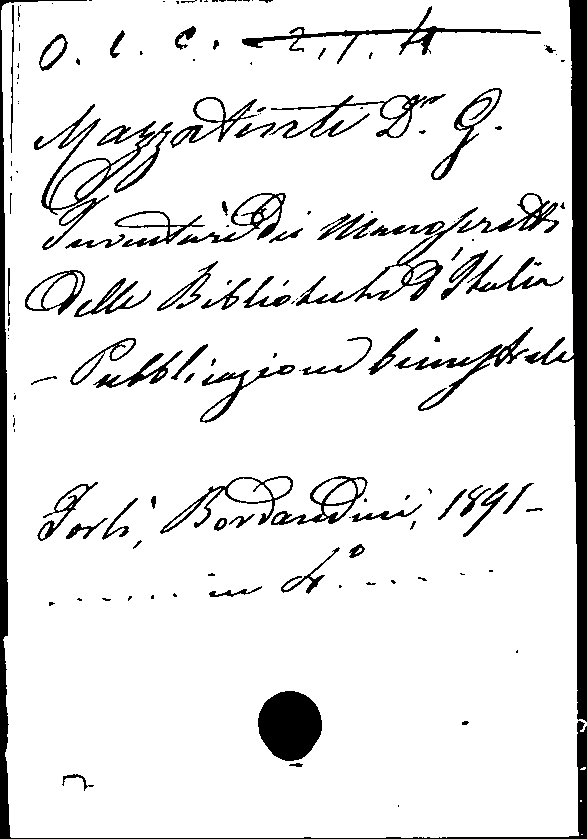 O. l. c. 2, 1. 4
Mazzatinti Dr. G.
Inventari dei Manoscritti
delle Biblioteche d'Italia
- Pubblicazione bimestrale
Forlì, Bordandini, 1891-
....... in 4° .......